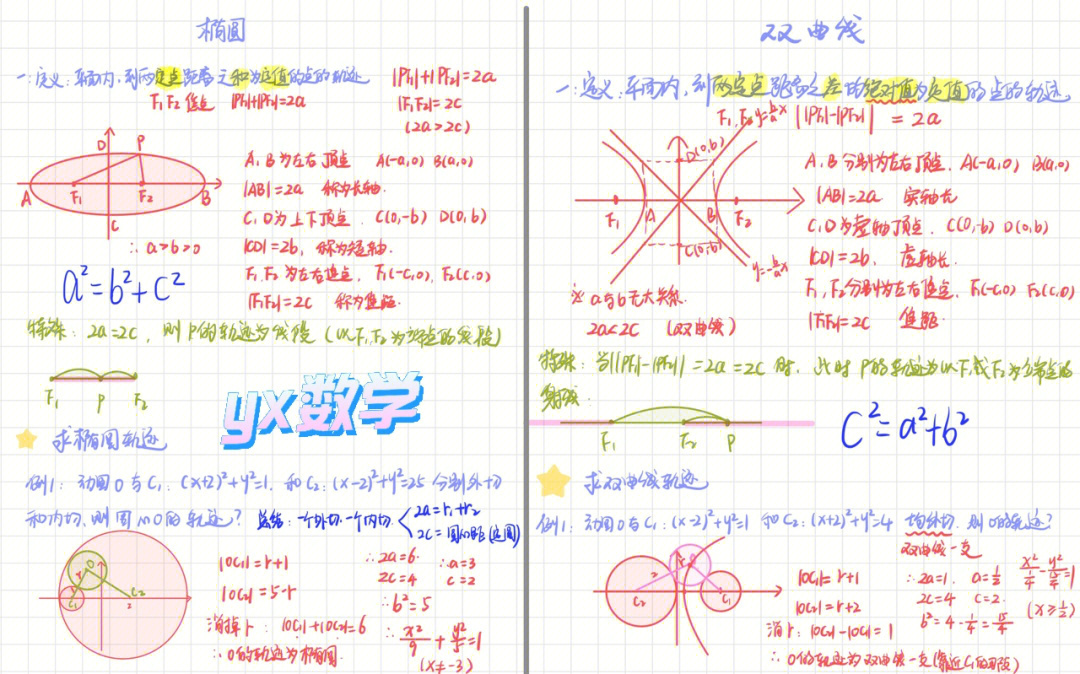 椭圆
一.定义:平面内,到两定点距离之和为定值的点的轨迹 |PF₁|+|PF₂|=2a
F₁F₂焦点 |PF₁|+|PF₂|=2a
|F₁F₂|=2c
(2a>2c)
D P
A F₁ F₂ B
C
A,B为左右顶点 A(-a,0) B(a,0)
|AB|=2a 称为长轴.
C,D为上下顶点. C(0,-b) D(0,b)
∴a>b>0
|CD|=2b,称为短轴.
F₁,F₂为左右焦点,F₁(-c,0),F₂(c,0)
|F₁F₂|=2c 称为焦距.
a²=b²+c²
特殊:2a=2c,则P的轨迹为线段(以F₁,F₂为端点的线段)
F₁ P F₂
yx数学
求椭圆轨迹
例1:动圆O与C₁:(x+2)²+y²=1.和C₂:(x-2)²+y²=25分别外切
和内切,则圆心O的轨迹?
总结:一个外切一个内切 2a=r₁+r₂
2c=圆心距(定圆)
O
r
C₁ C₂
2
|OC₁|=r+1
|OC₂|=5-r
消掉r:|OC₁|+|OC₂|=6
∴O的轨迹为椭圆.
∴2a=6 ∴a=3
2c=4 c=2
∴b²=5
∴x²/9+y²/5=1
(x≠-3)
双曲线
一.定义:平面内,到两定点距离之差的绝对值为定值的点的轨迹
F₁,F₂ y=b/a x ||PF₁|-|PF₂||=2a
D(0,b)
F₁ A B F₂
C(0,-b)
y=-b/a x
A,B分别为左右顶点.A(-a,0) B(a,0)
|AB|=2a 实轴长
C,D为虚轴顶点.C(0,-b) D(0,b)
|CD|=2b, 虚轴长.
F₁,F₂分别为左右焦点.F₁(-c,0) F₂(c,0)
|F₁F₂|=2c 焦距.
※a与b无大关系.
2a<2c (双曲线)
特殊:当||PF₁|-|PF₂||=2a=2c时,此时P的轨迹为以F₁或F₂为端点的
射线.
F₁ F₂ P
c²=a²+b²
求双曲线轨迹
例1:动圆O与C₁:(x-2)²+y²=1和C₂:(x+2)²+y²=4均外切.则O的轨迹?
双曲线一支
2 r O
C₂ C₁
|OC₁|=r+1
|OC₂|=r+2
消r:|OC₂|-|OC₁|=1
∴O的轨迹为双曲线一支(靠近C₁的那段)
∴2a=1. a=1/2
2c=4 c=2.
b²=4-1/4=15/4
x²/¼-y²/15/4=1
(x≥1/2)